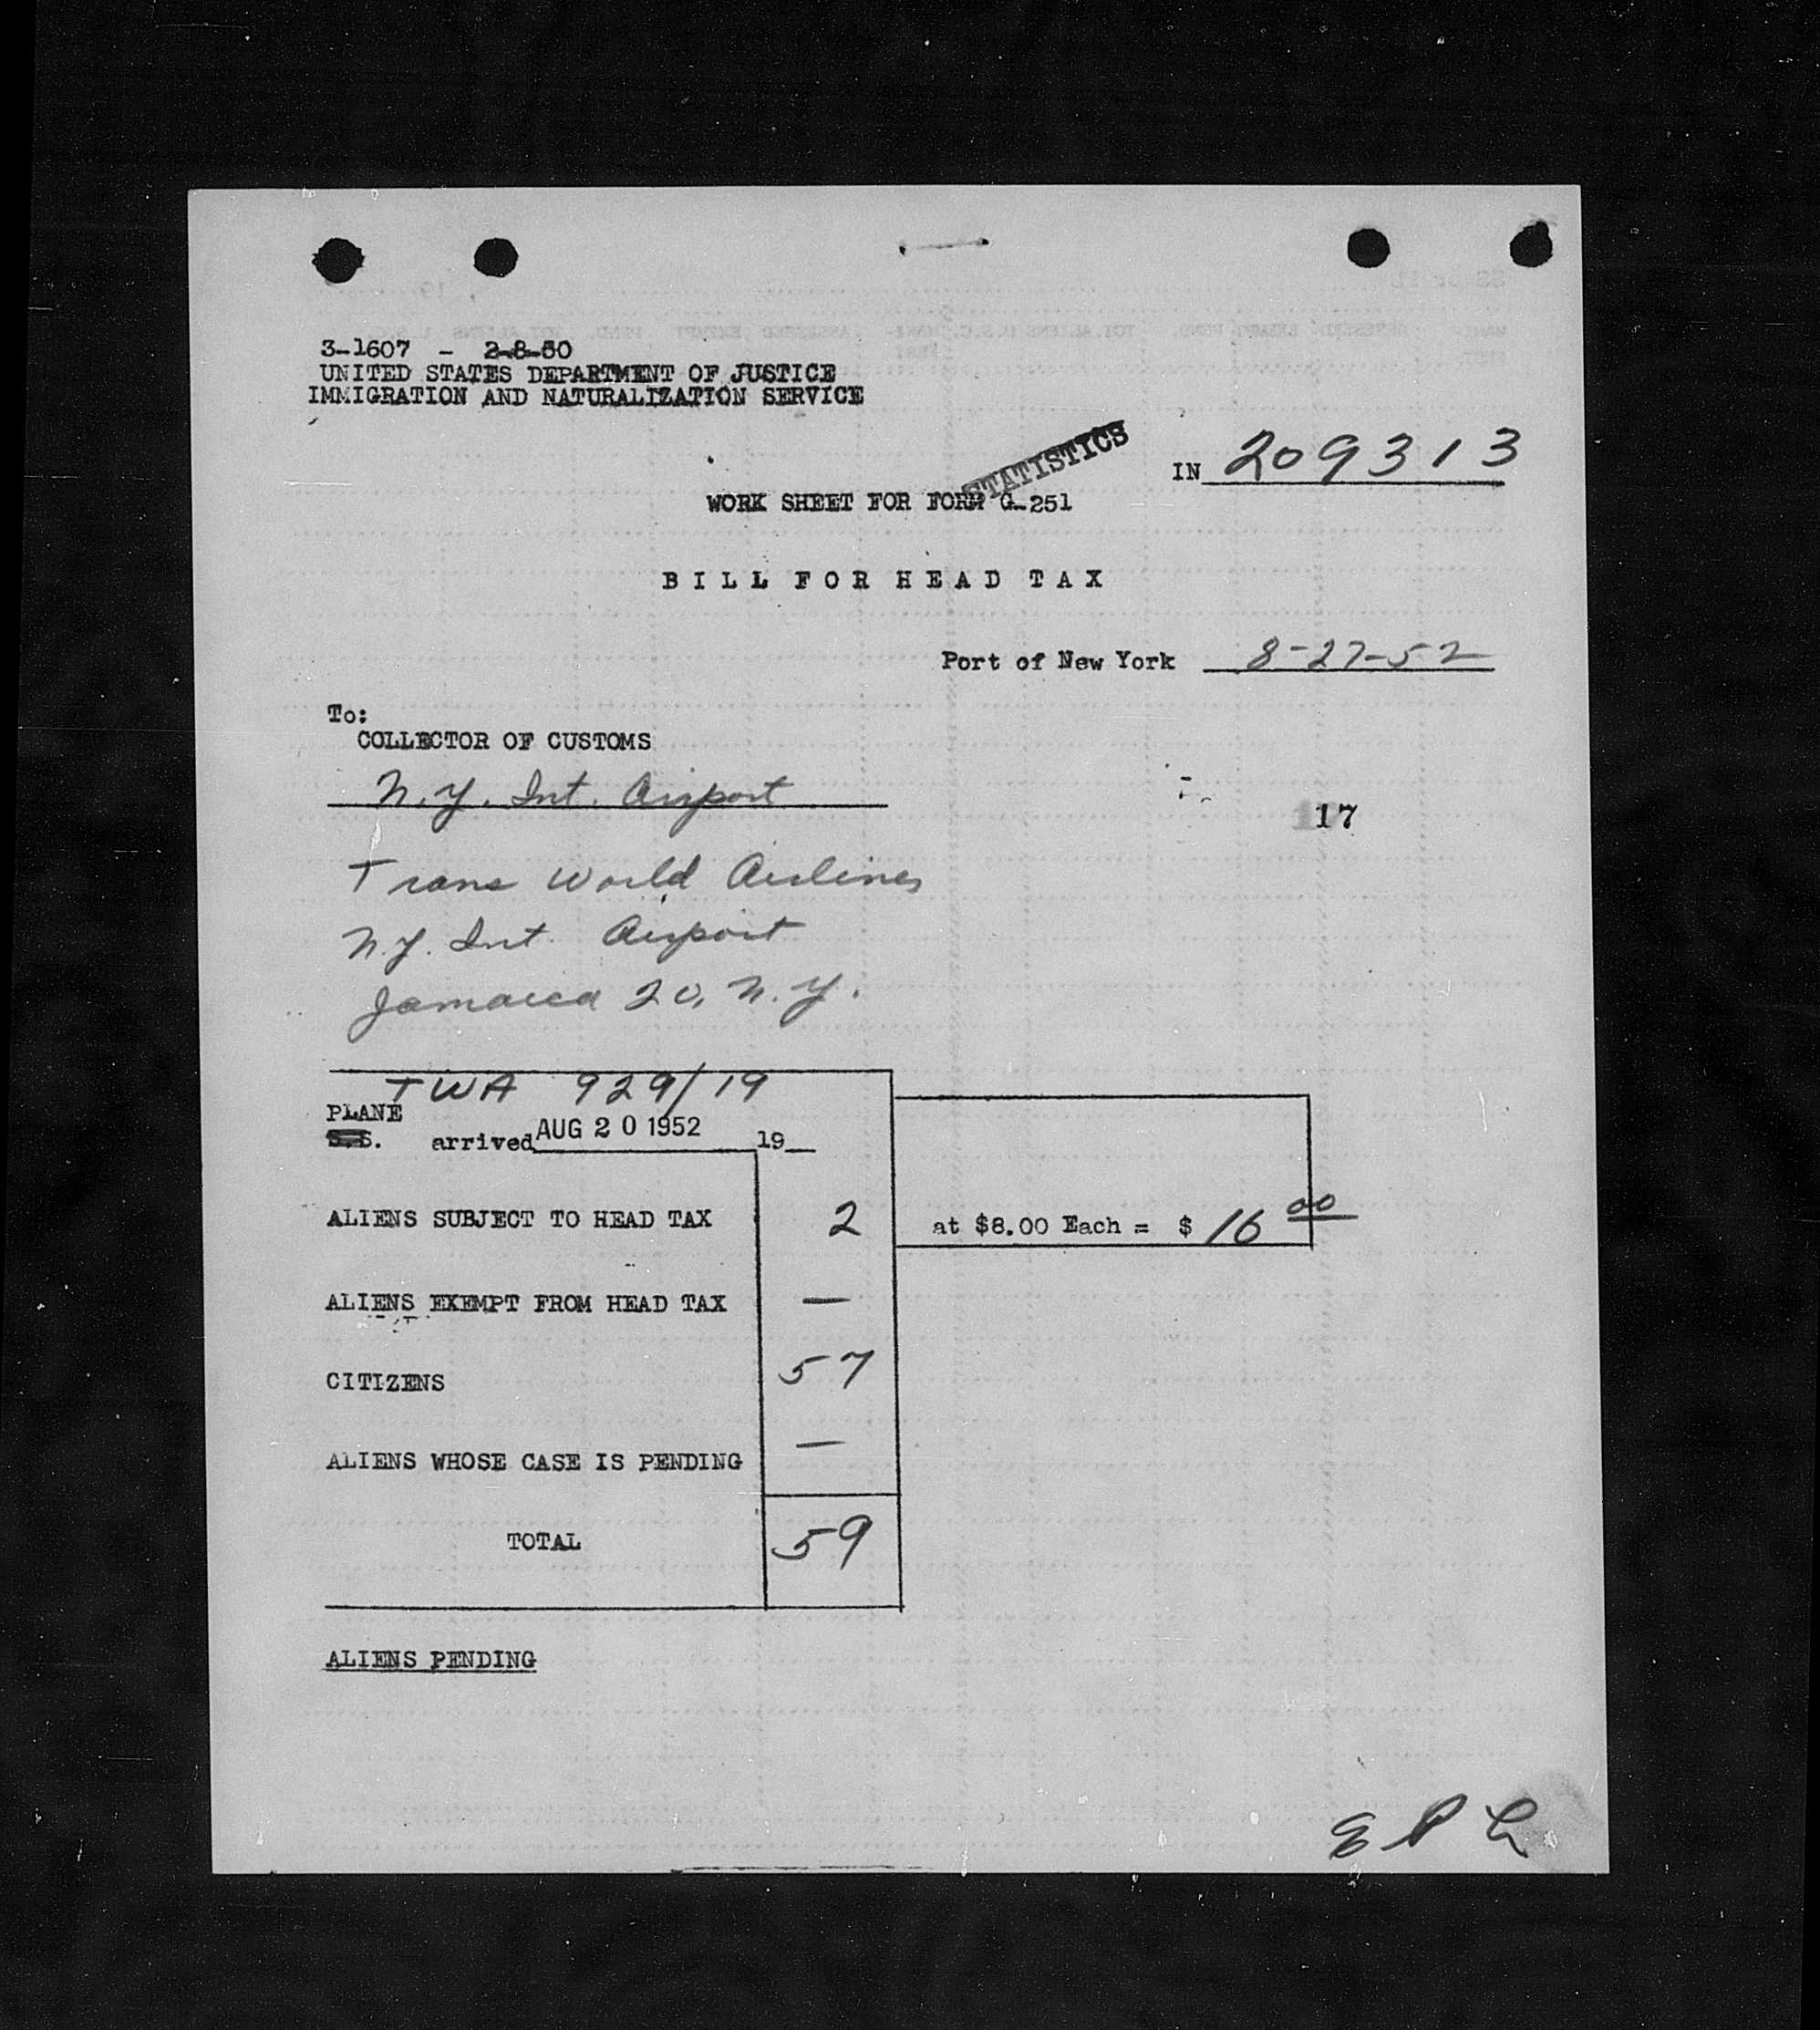 3-1607 - 2-8-50
UNITED STATES DEPARTMENT OF JUSTICE
IMMIGRATION AND NATURALIZATION SERVICE
STATISTICS
IN 209313
WORK SHEET FOR FORM G-251
BILL FOR HEAD TAX
Port of New York 8-27-52
To:
COLLECTOR OF CUSTOMS
N.Y. Int. Airport
17
Trans World Airlines
N.Y. Int. Airport
Jamaica 20, N.Y.
TWA 929/19
PLANE
S.S. arrived AUG 20 1952 19
ALIENS SUBJECT TO HEAD TAX 2 at $8.00 Each = $ 16 00
ALIENS EXEMPT FROM HEAD TAX —
CITIZENS 57
ALIENS WHOSE CASE IS PENDING —
TOTAL 59
ALIENS PENDING